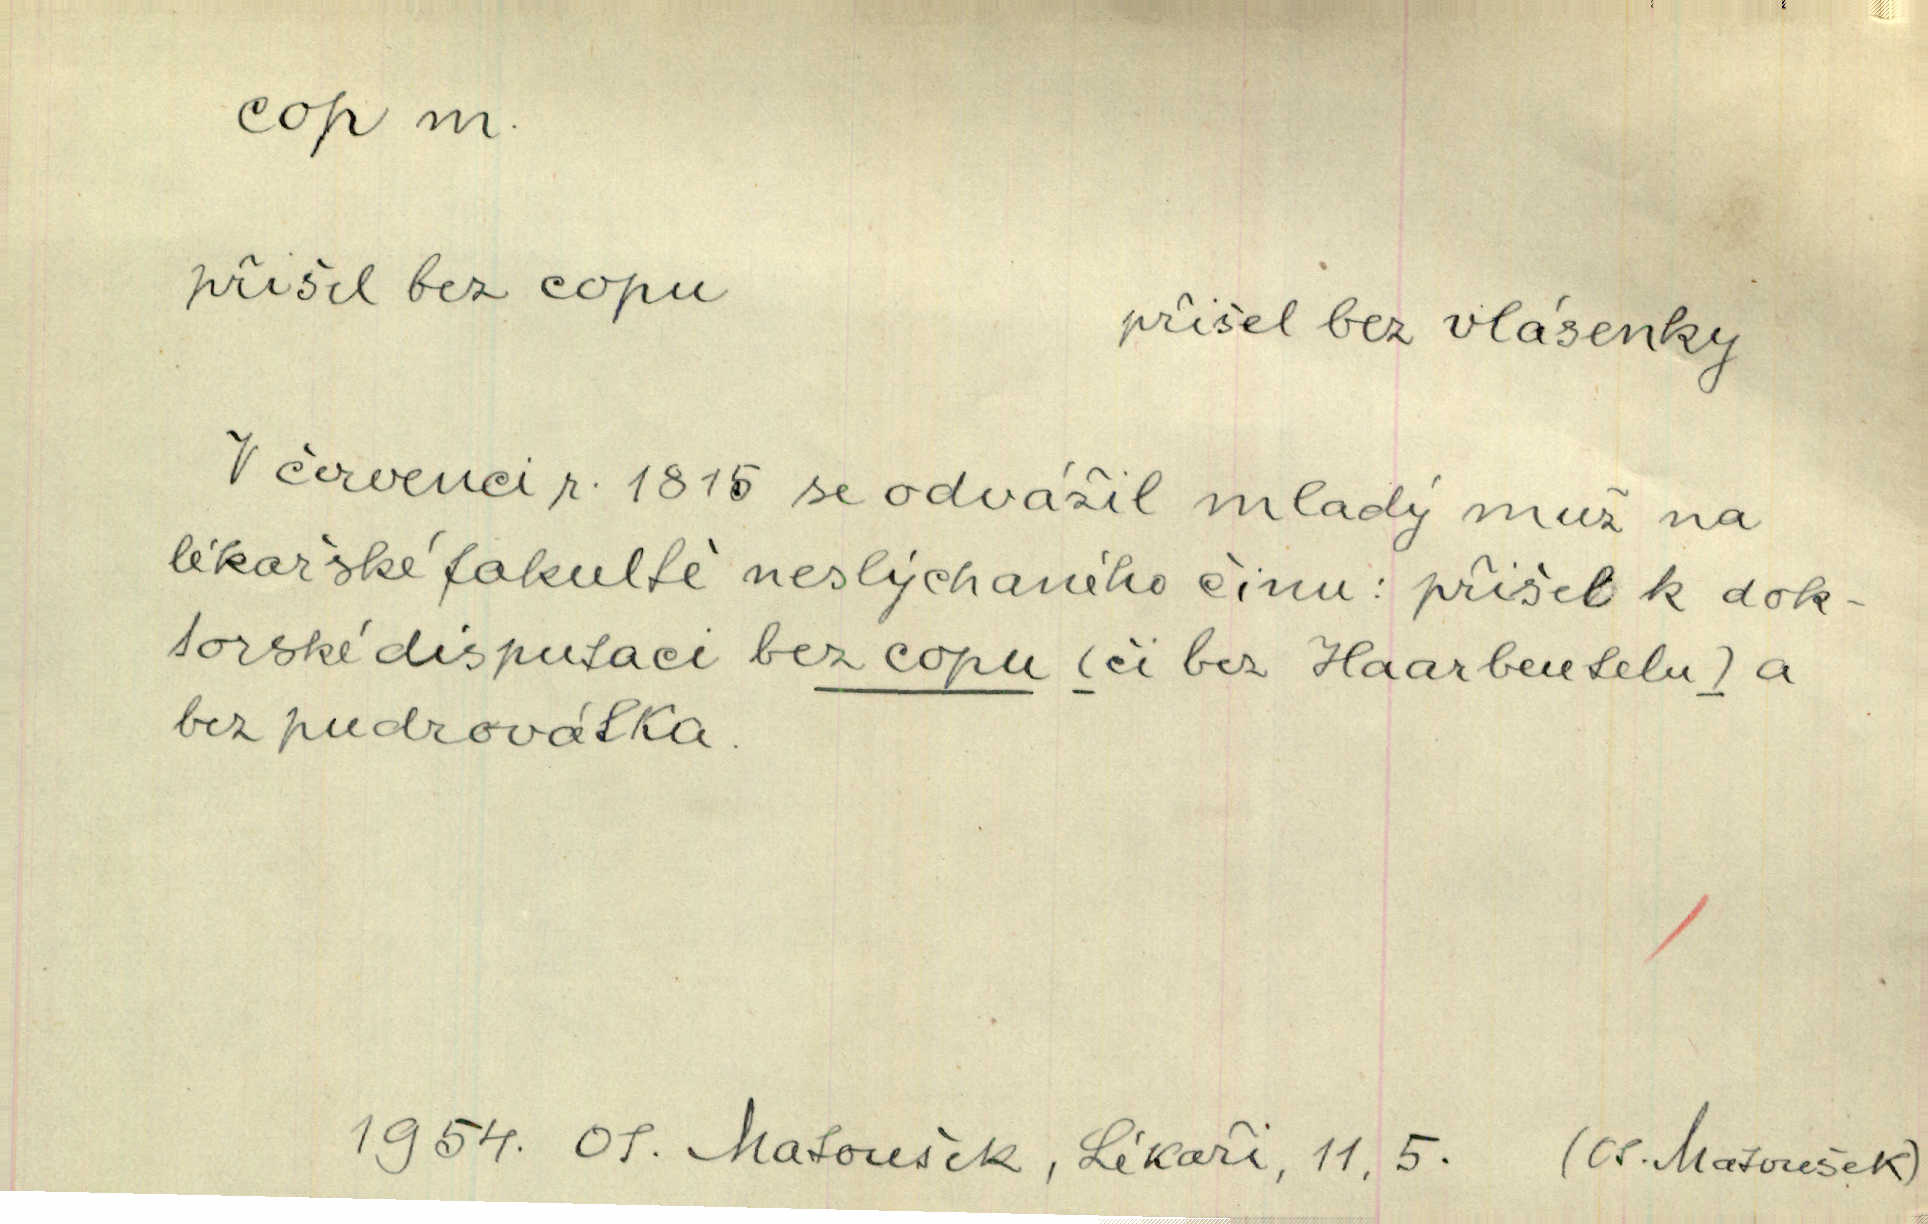 cop m.
přišel bez copu
přišel bez vlásenky
V červenci r. 1815 se odvážil mladý muž na
lékařské fakultě neslýchaného činu: přišel k dok-
torské disputaci bez copu (či bez Haarbeutelu) a
bez pudrovátka.
1954. Ot. Matoušek, Lékaři, 11, 5. (Ot. Matoušek)